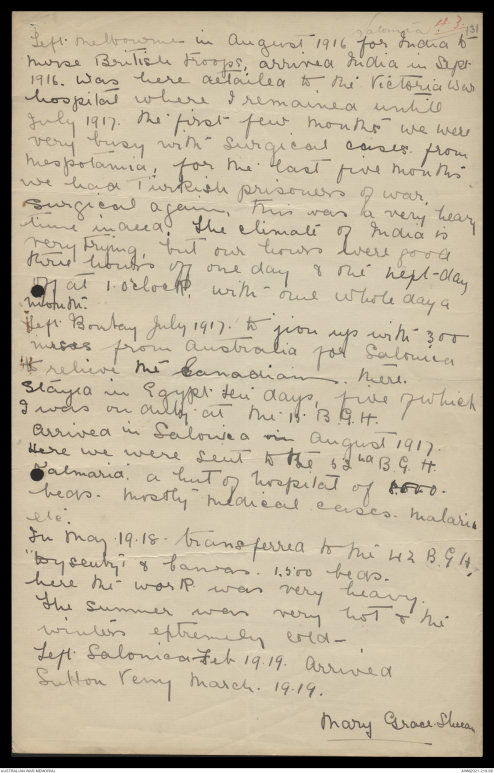 Salonica H.3. 131
Left Melbourne in August 1916 for India to
nurse British troops, arrived India in Sept
1916. Was here detailed to the Victoria War
hospital where I remained untill
July 1917. The first few months we were
very busy with surgical cases from
Mespotamia, for the last five months
we had Turkish prisoners of war,
surgical again, this was a very heavy
time indeed. The climate of India is
very trying, but our hours were good
three hours off one day & the next-day
off at 1. o'clock, with one whole day a
month.
Left Bombay July 1917. to jion up with 300
nurses from Australia for Salonica
to relieve the Canadians. there.
Stayed in Egypt ten days, five of which
I was on duty at the 15 B.G.H.
Arrived in Salonica in August 1917.
Here we were sent to the 52nd B.G.H.
Kalmaria. a hut of hospital of
beds. mostly medical cases. malaria
etc.
In May 19.18. transferred to the 42 B.G.H.
"Dysentry" & Canvas. 1,500 beds.
here the work was very heavy.
The summer was very hot & the
winters extremely cold-
Left Salonica Feb 19.19. Arrived
Sutton Veny March. 19.19.
Mary Grace Sheean
AUSTRALIAN WAR MEMORIAL